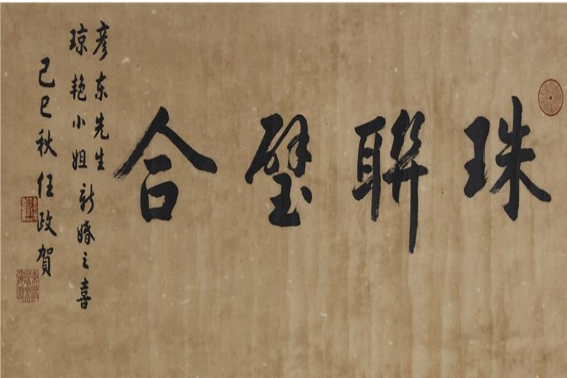 珠聯璧合
彦东先生
琼艳小姐新婚之喜
己巳秋任政贺